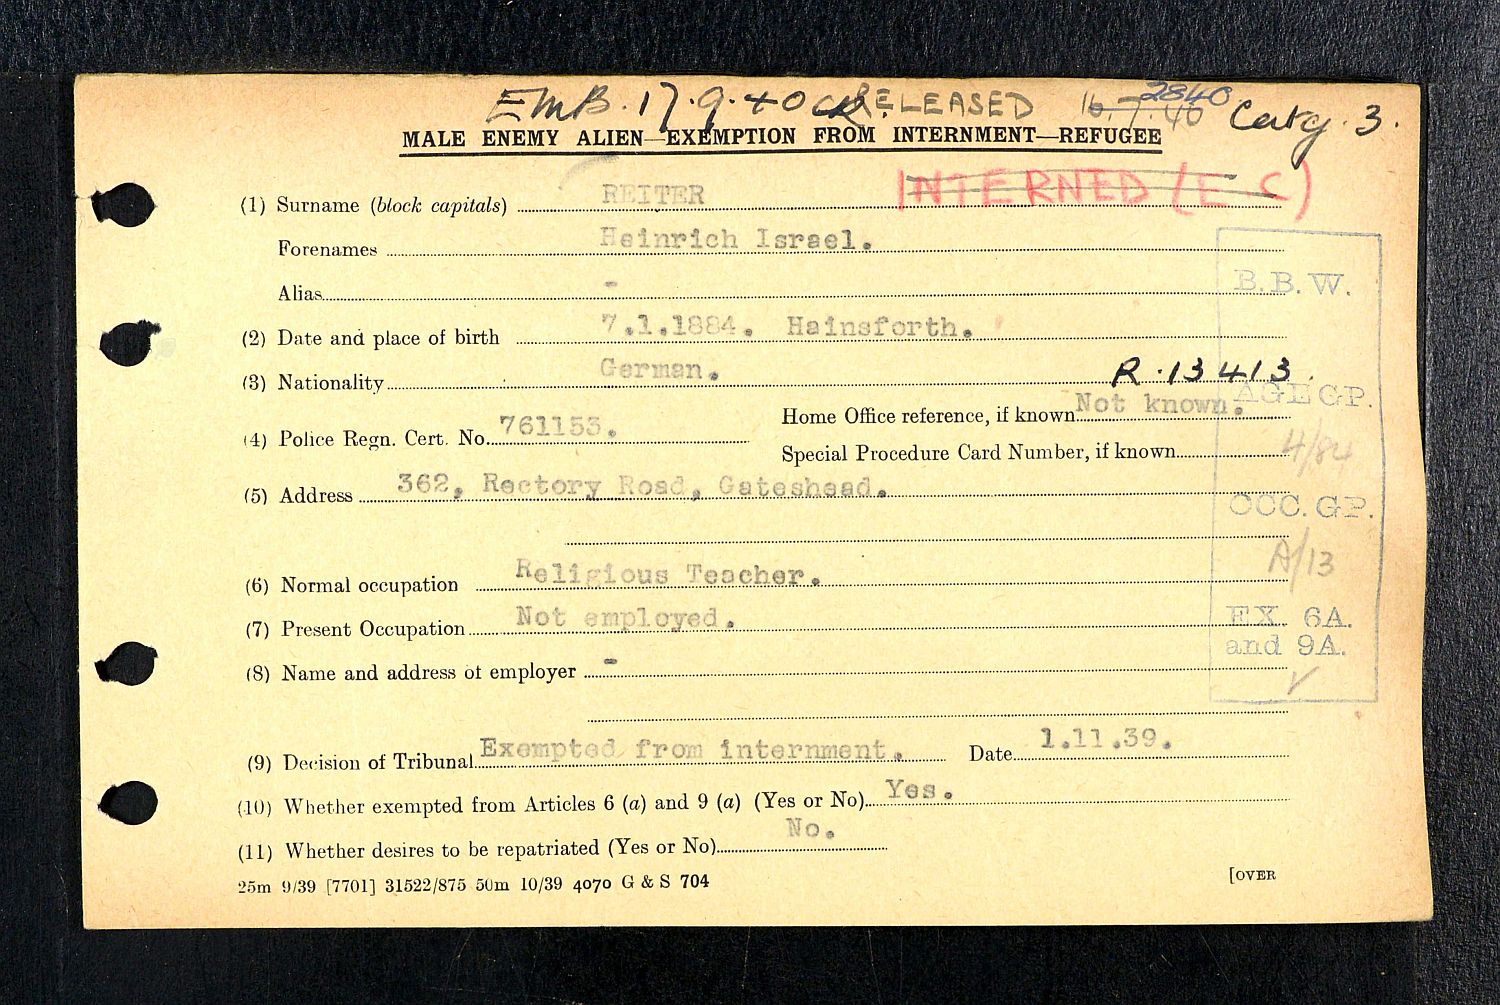 EMB. 17.9.40 RELEASED 16.7.40 2840 Catg. 3.
MALE ENEMY ALIEN—EXEMPTION FROM INTERNMENT—REFUGEE
INTERNED (E C)
(1) Surname (block capitals) REITER
Forenames Heinrich Israel.
Alias -
B.B.W.
(2) Date and place of birth 7.1.1884. Hainsforth.
(3) Nationality German.
R.13413.
AGE GP.
Home Office reference, if known Not known.
(4) Police Regn. Cert. No. 761153.
Special Procedure Card Number, if known
4/84
(5) Address 362, Rectory Road, Gateshead.
OCC. GP.
A/13
(6) Normal occupation Religious Teacher.
(7) Present Occupation Not employed.
EX 6A.
and 9A.
(8) Name and address of employer -
(9) Decision of Tribunal Exempted from internment. Date 1.11.39.
(10) Whether exempted from Articles 6 (a) and 9 (a) (Yes or No) Yes.
(11) Whether desires to be repatriated (Yes or No) No.
25m 9/39 [7701] 31522/875 50m 10/39 4070 G & S 704
[OVER